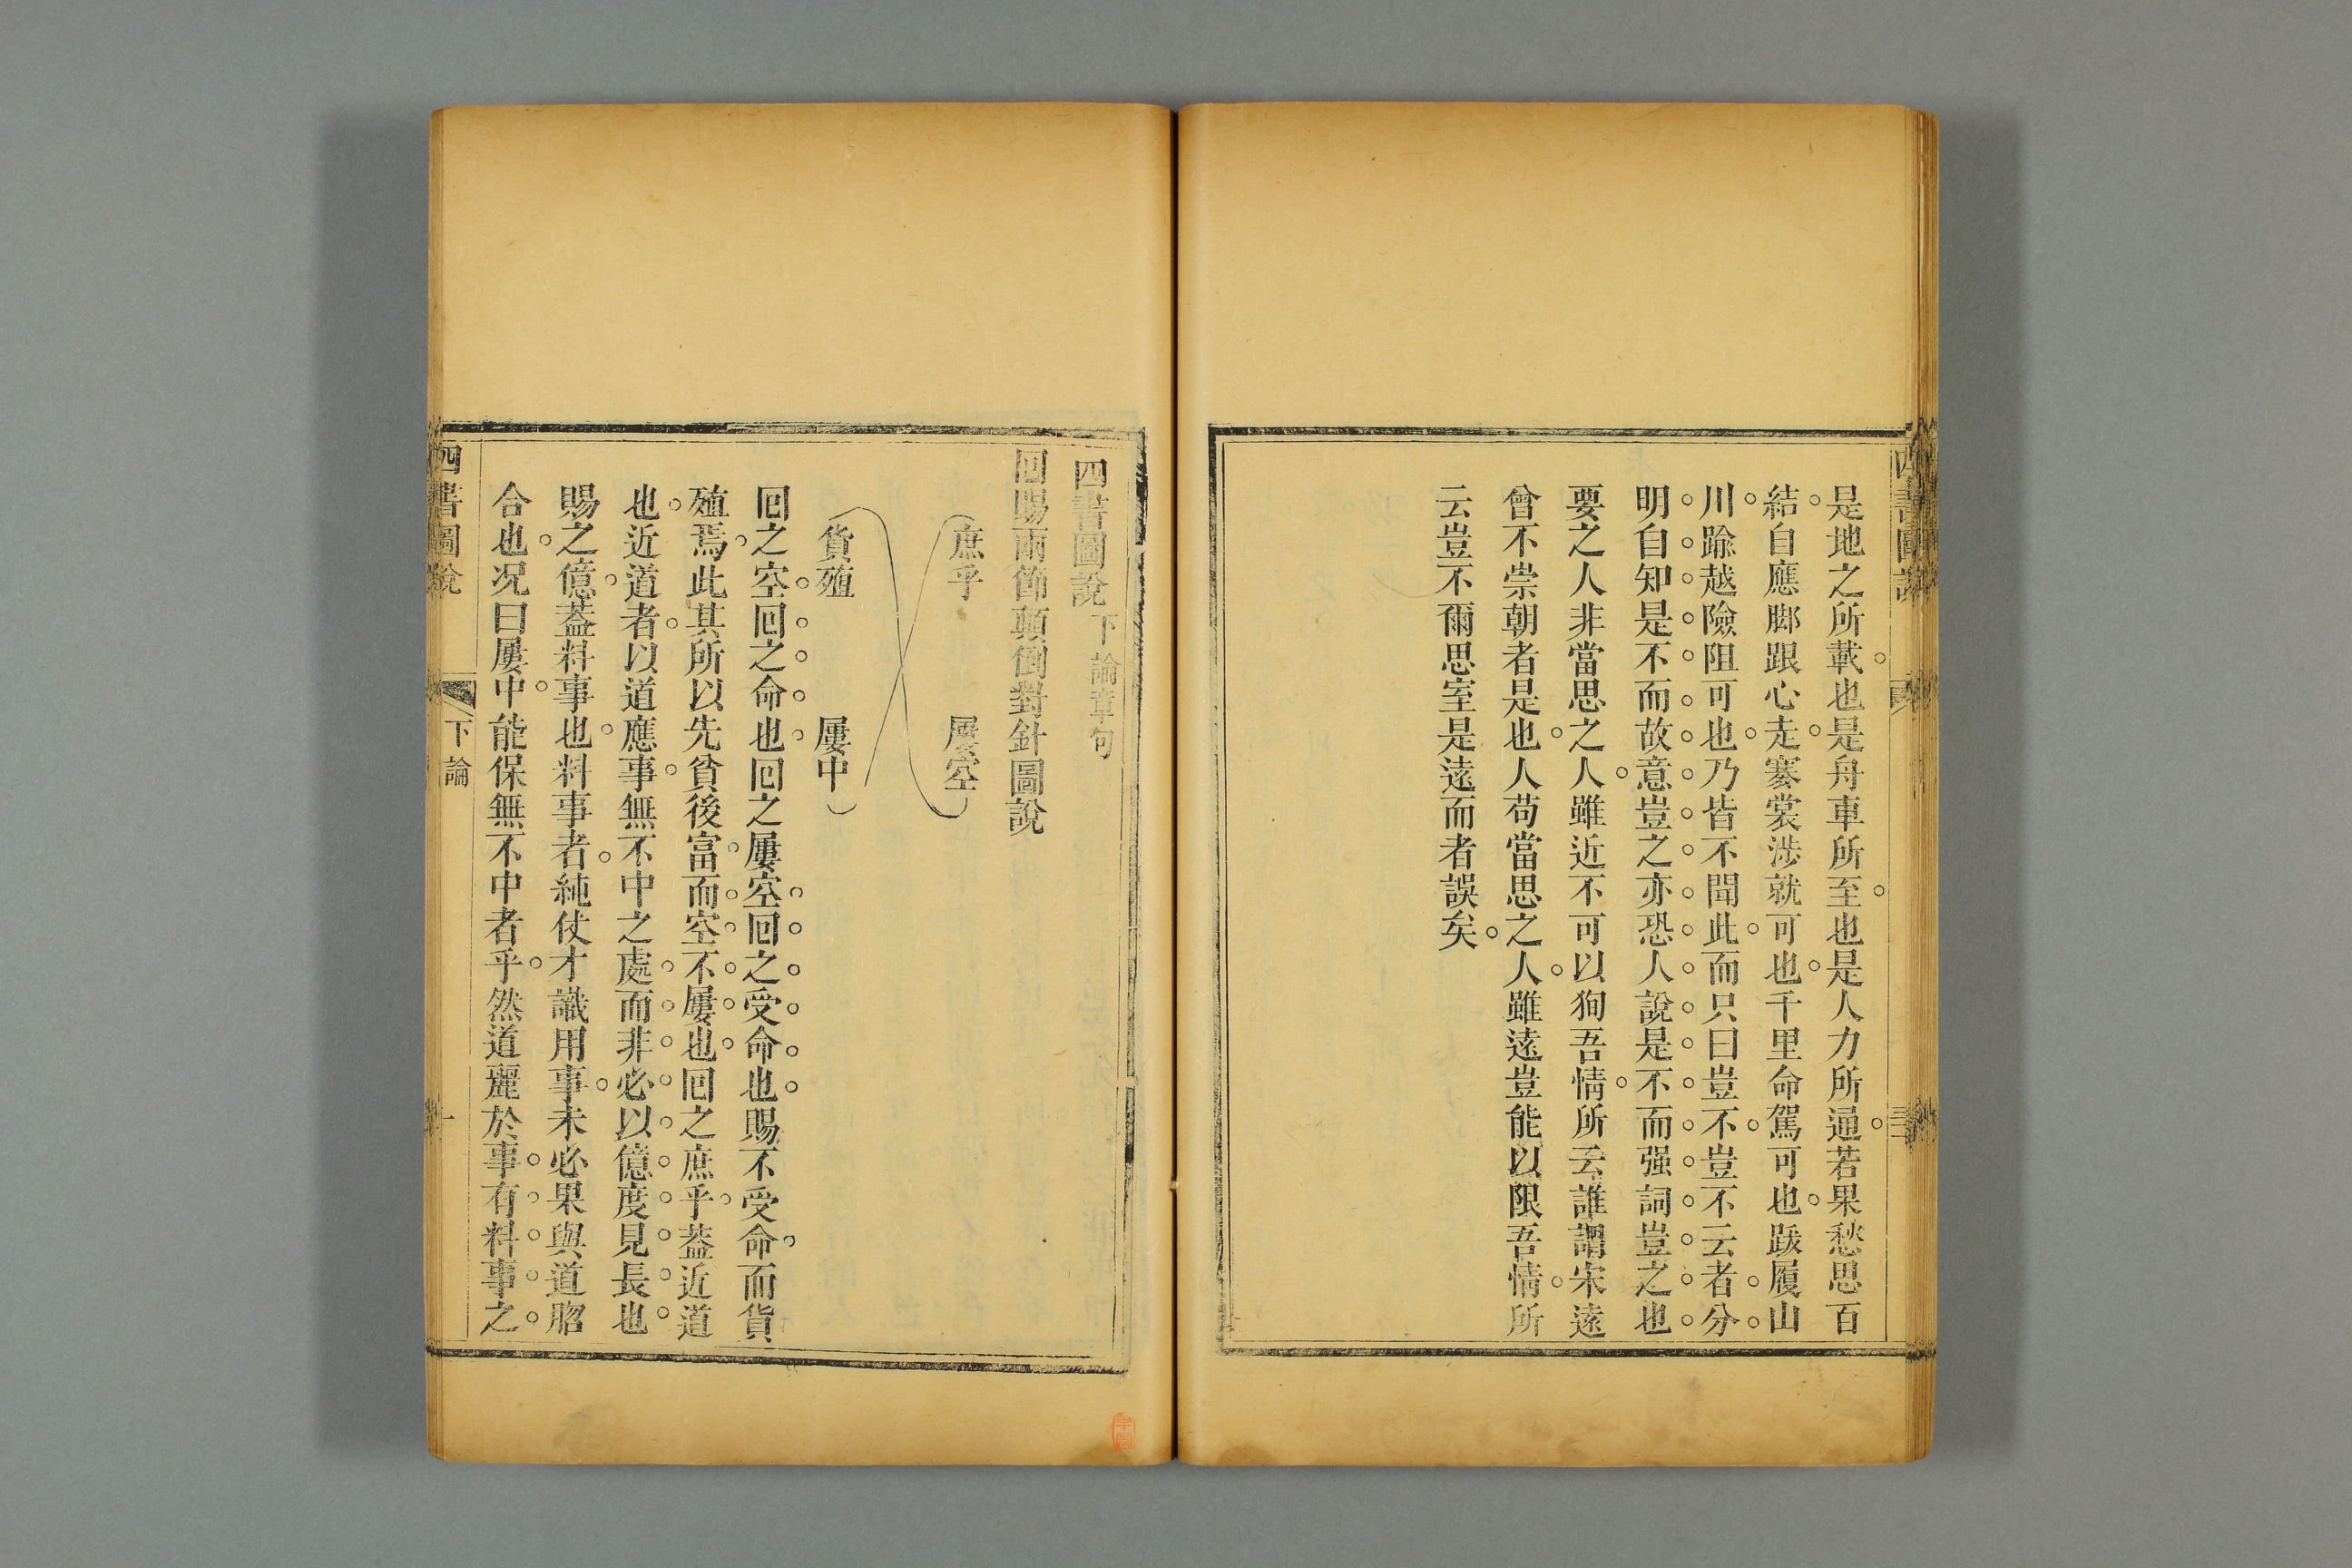 是地之所載也是舟車所至也是人力所通若果愁思百
結自應脚跟心走褰裳涉就可也千里命駕可也跋履山
川踰越險阻可也乃皆不聞此而只曰豈不豈不云者分
明自知是不而故意豈之亦恐人說是不而强詞豈之也
要之人非當思之人雖近不可以狥吾情所云誰謂宋遠
曾不崇朝者是也人苟當思之人雖遠豈能以限吾情所
云豈不爾思室是遠而者誤矣
四書圖說 下論章句
囘賜兩節顛倒對針圖說
庶乎 屢空
貨殖 屢中
囘之空囘之命也囘之屢空囘之受命也賜不受命而貨
殖焉此其所以先貧後富而空不屢也囘之庶乎蓋近道
也近道者以道應事無不中之處而非必以億度見長也
賜之億蓋料事也料事者純仗才識用事未必果與道脗
合也况曰屢中能保無不中者乎然道麗於事有料事之
四書圖說 下論 一